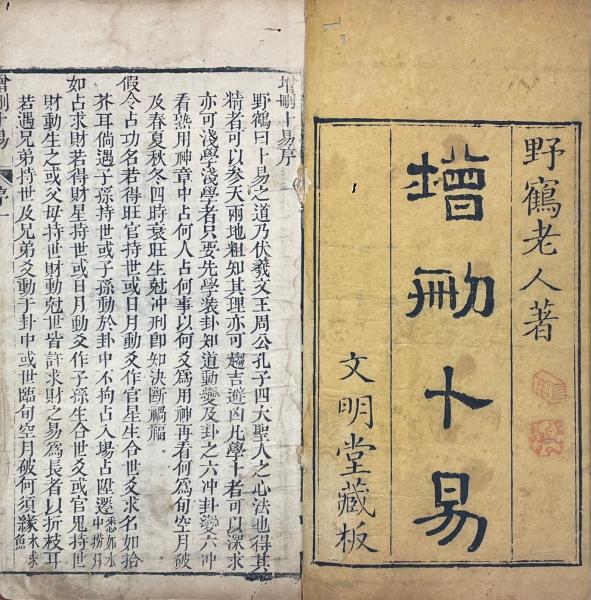 野鶴老人著
增刪卜易
文明堂藏板
增刪卜易序
野鶴曰卜易之道乃伏羲文王周公孔子四大聖人之心法也得其
精者可以參天兩地粗知其理亦可趨吉避凶凡學卜者可以深求
亦可淺學淺學者只要先學裝卦知道動變及卦之六冲卦變六冲
看熟用神章中占何人占何事以何爻爲用神再看何爲旬空月破
及春夏秋冬四時衰旺生尅冲刑即知決斷禍福
假令占功名若得旺官持世或日月動爻作官星生合世爻求名如拾
芥耳倘遇子孫持世或子孫動於卦中不拘占入場占陞遷悉如水中撈月
如占求財若得財星持世或日月動爻作子孫生合世爻或官鬼持世
財動生之或父母持世財動尅世皆許求財之易爲長者以折枝耳
若遇兄弟持世及兄弟爻動于卦中或世臨旬空月破何須緣木求魚
增刪卜易 序 一